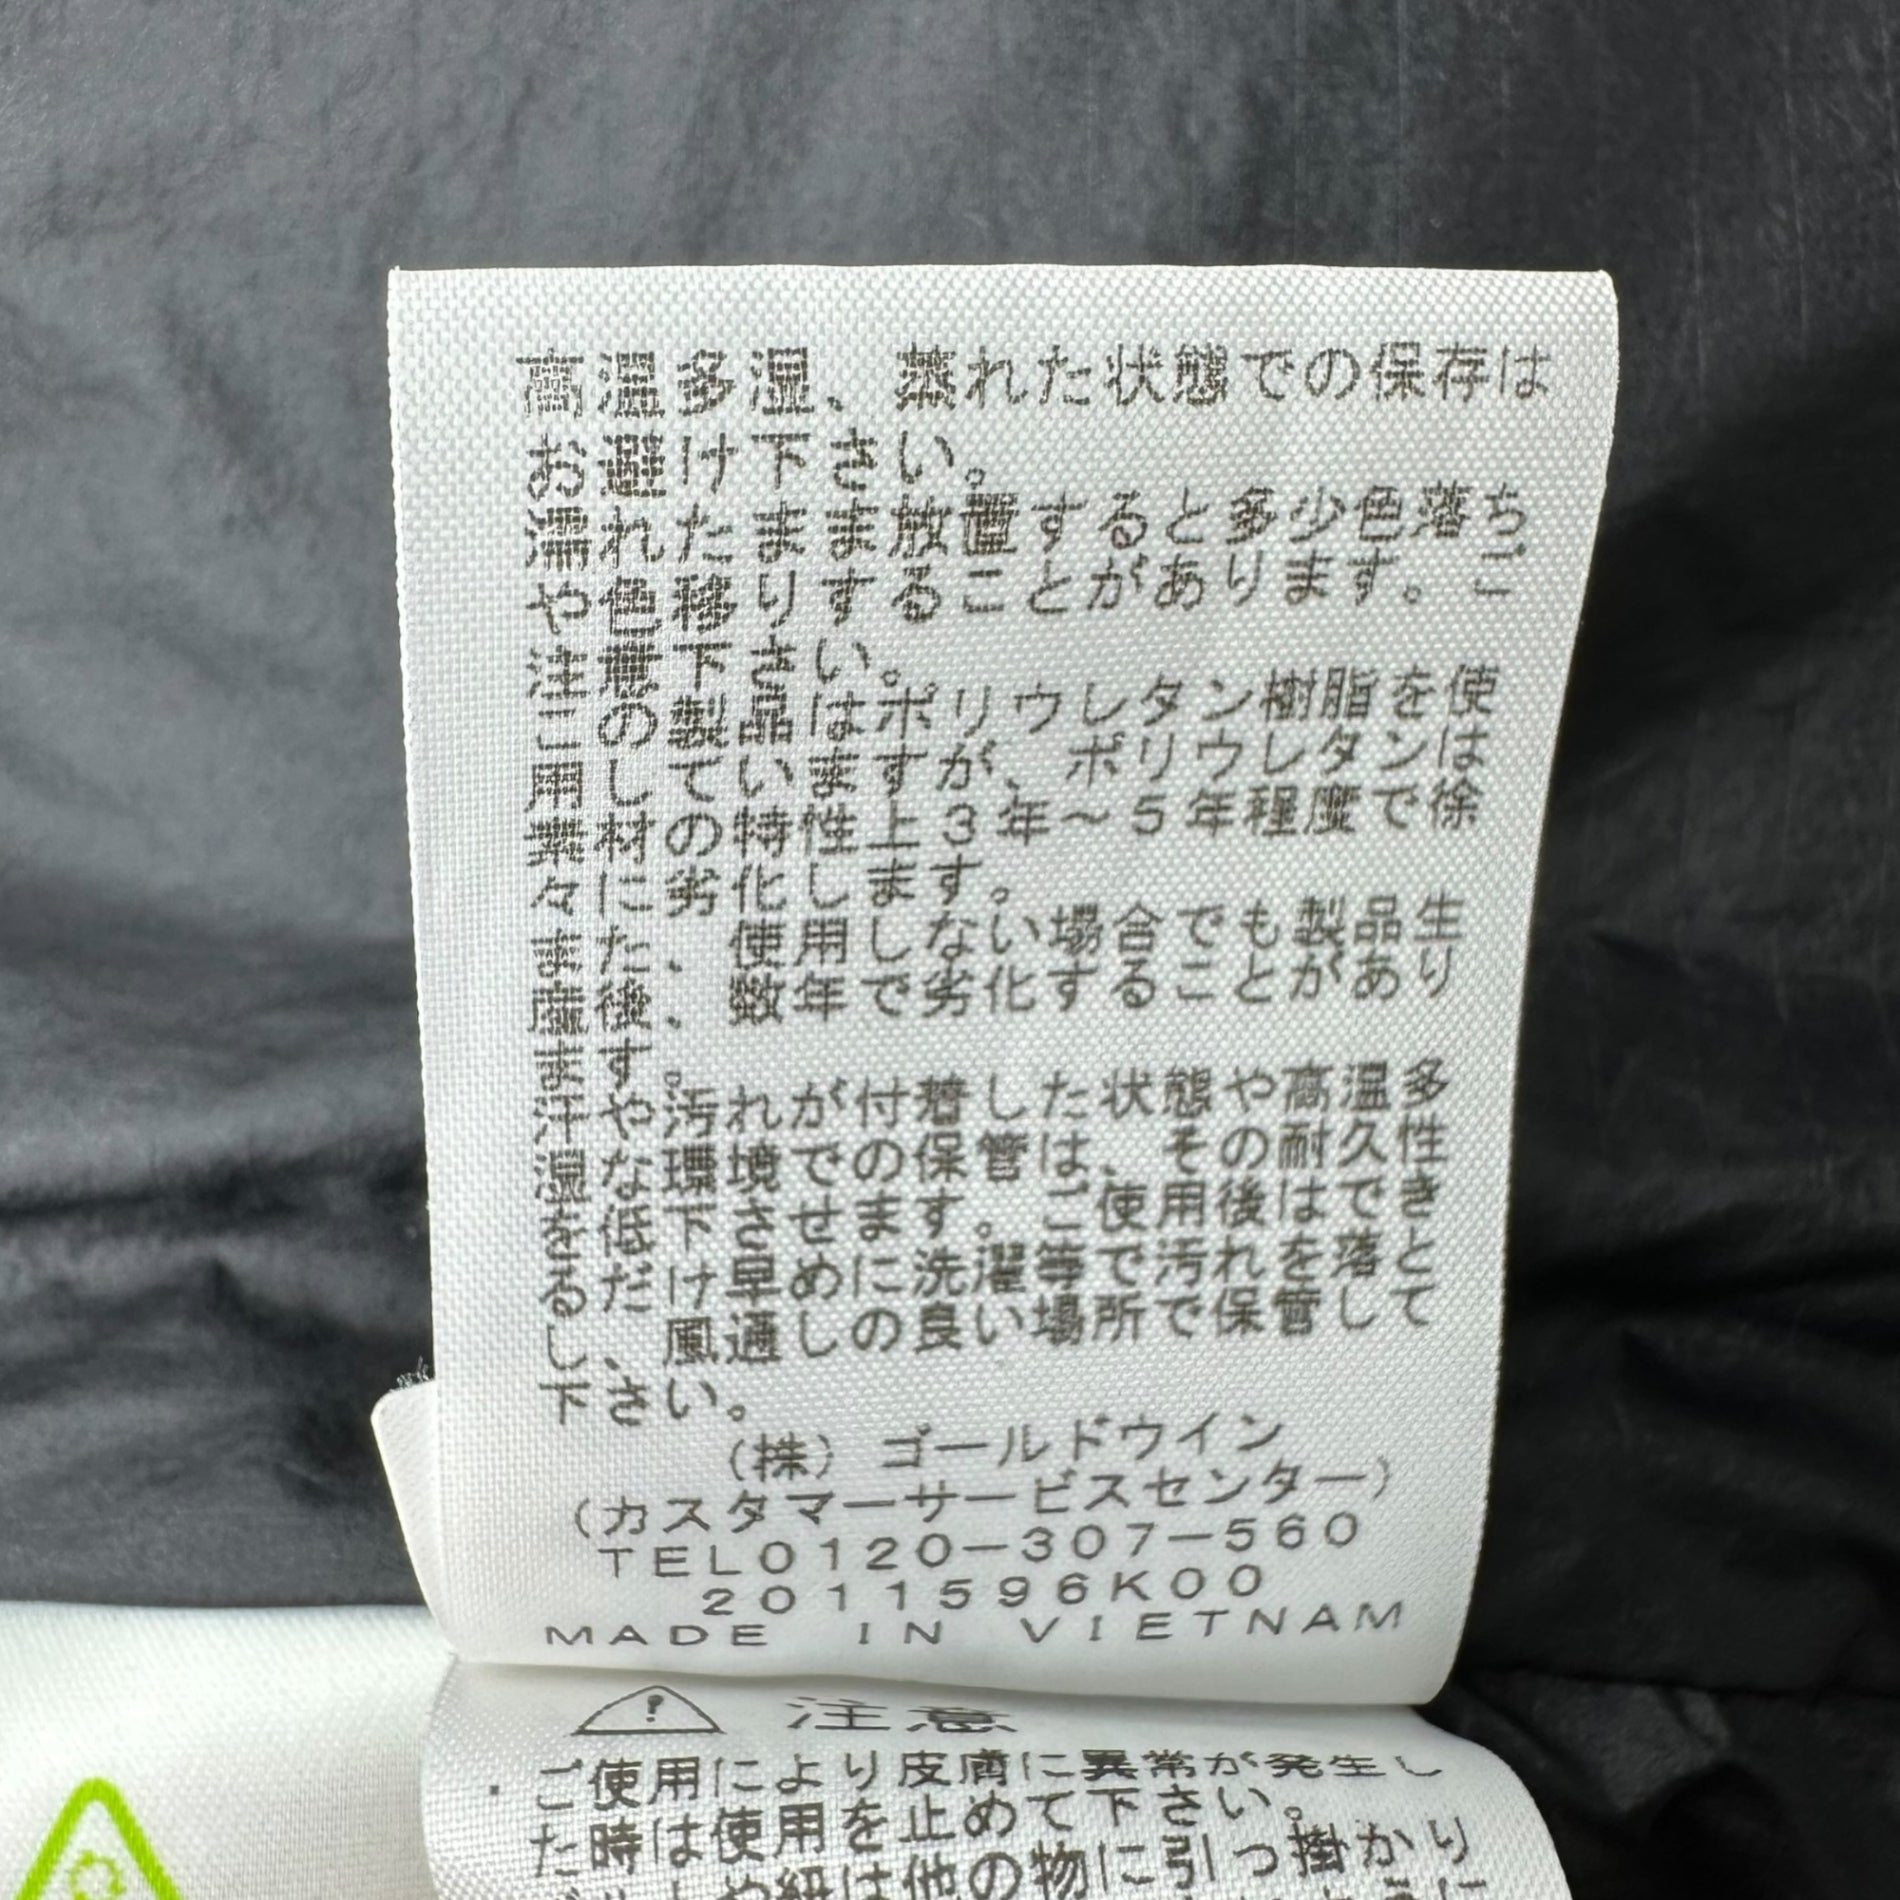 高温多湿、蒸れた状態での保存は
お避け下さい。
濡れたまま放置すると多少色落ち
や色移りすることがあります。ご
注意下さい。
この製品はポリウレタン樹脂を使
用していますが、ポリウレタンは
素材の特性上3年~5年程度で徐
々に劣化します。
また、使用しない場合でも製品生
産後、数年で劣化することがあり
ます。
汗や汚れが付着した状態や高温多
湿な環境での保管は、その耐久性
を低下させます。ご使用後はでき
るだけ早めに洗濯等で汚れを落と
し、風通しの良い場所で保管して
下さい。
(株)ゴールドウイン
(カスタマーサービスセンター)
TEL0120-307-560
2011596K00
MADE IN VIETNAM
注意
・ご使用により皮膚に異常が発生し
た時は使用を止めて下さい。
や紐は他の物に引っ掛かり